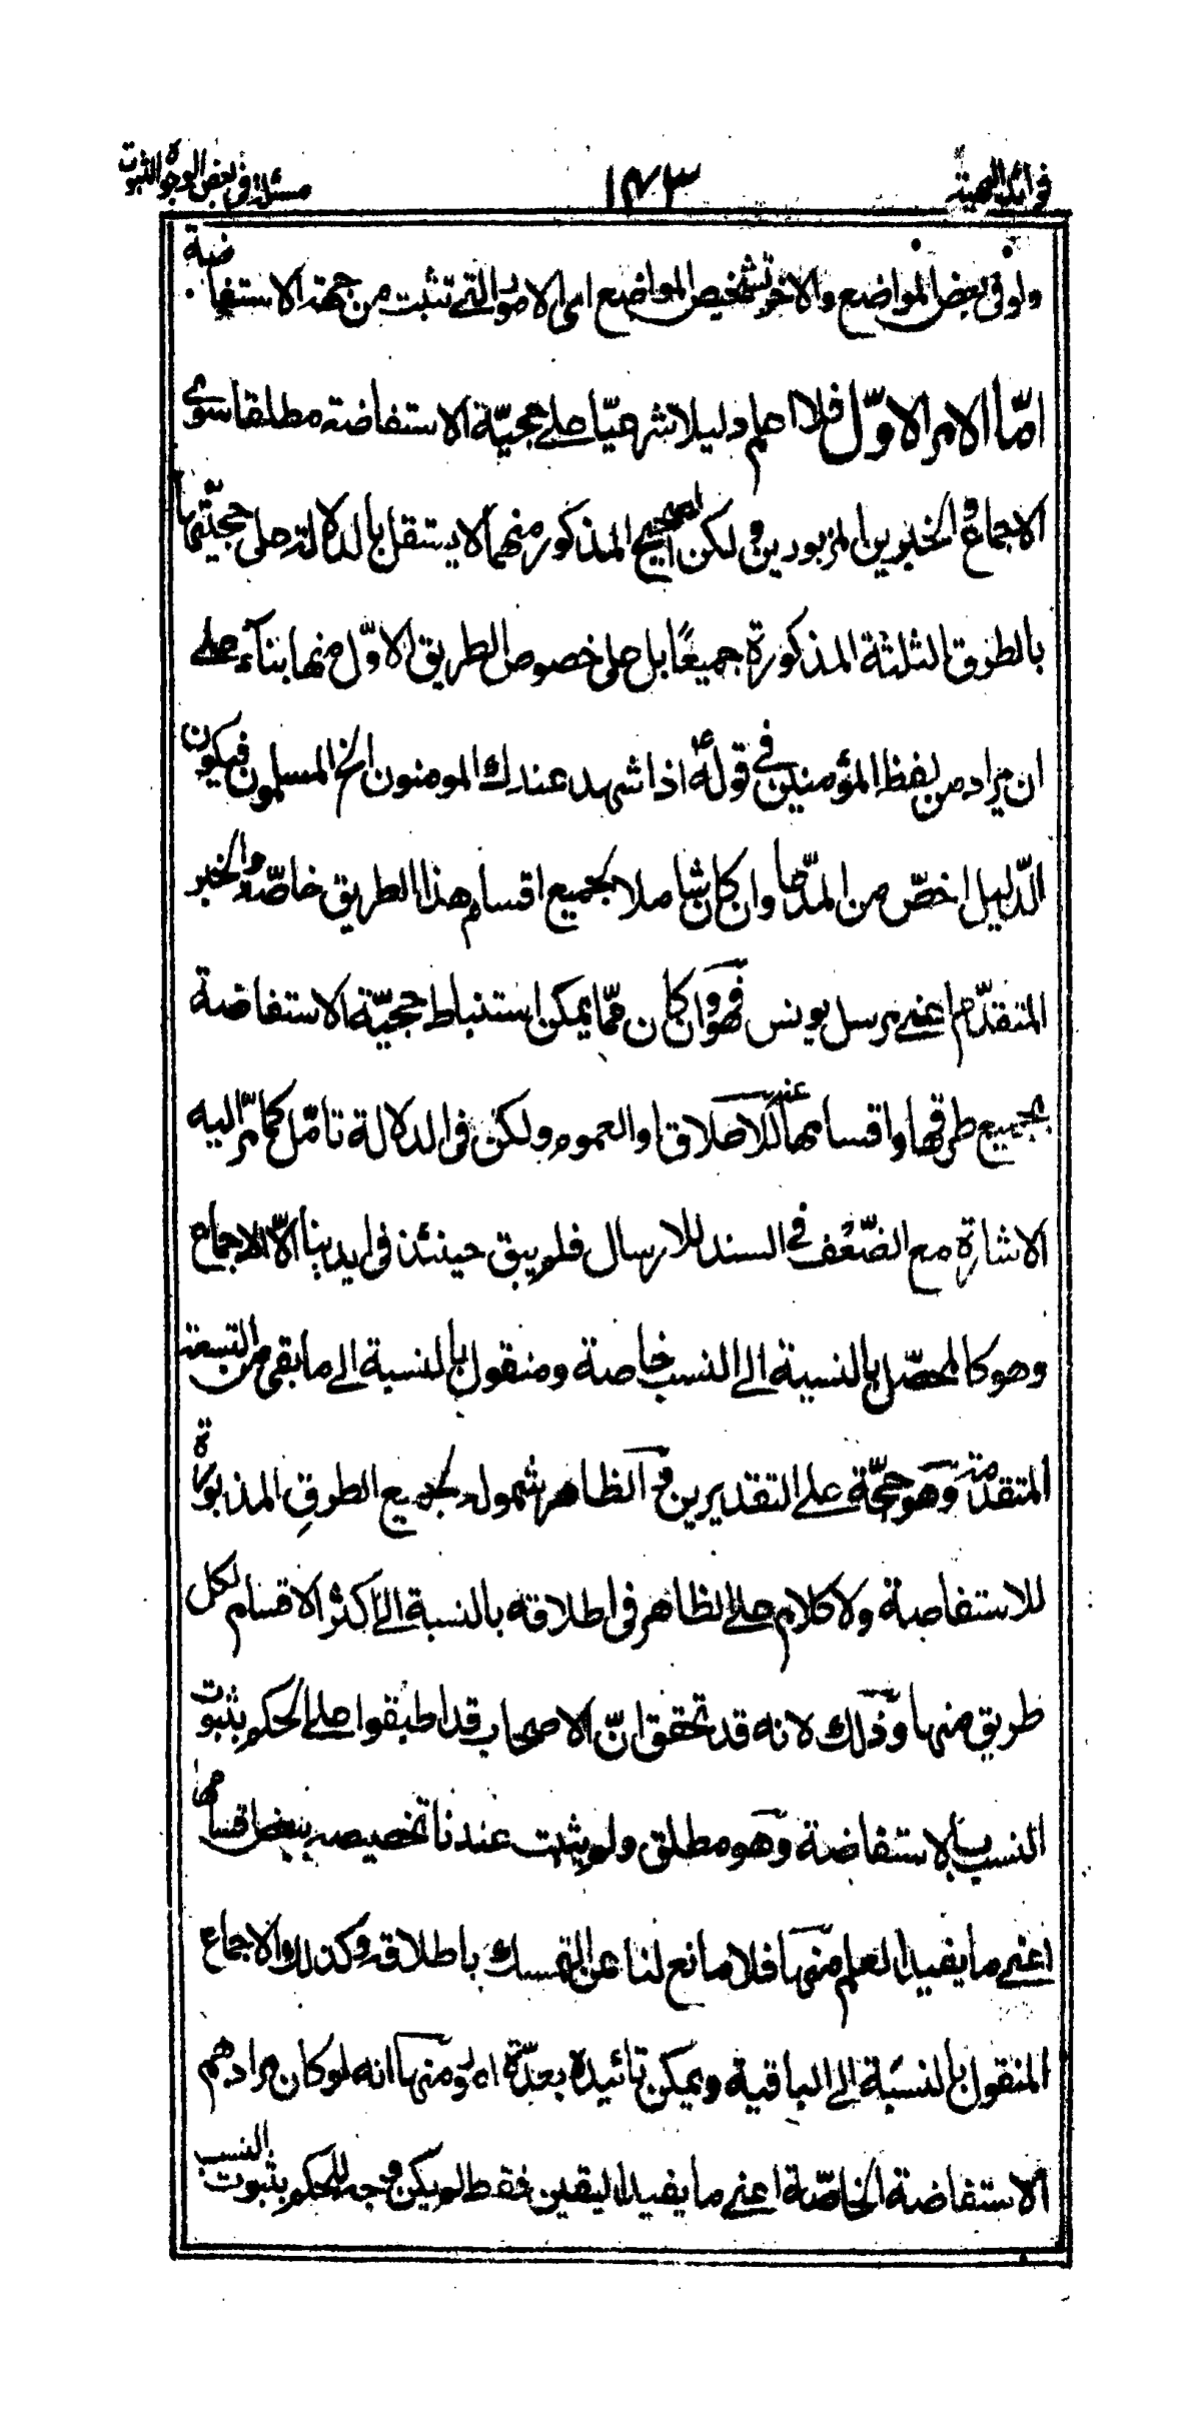 فوائد البهية
١٧٣
مسئلة فى بعض الوجوه الثبوت
ولو فى بعض المواضع والاخر تشخيص المواضع اى الامور التى تثبت من جهة الاستفاضة
امّا الامر الاوّل فلا اعلم دليلا شرعيّا على حجيّة الاستفاضة مطلقا سوى
الاجماع و الخبرين المزبورين و لكن الصحيح المذكور منهما لا يستقل بالدلالة على حجيّتها
بالطرق الثلثة المذكورة جميعًا بل على خصوص الطريق الاوّل منها بناءً على
ان يراد من لفظ المؤمنين فى قوله ع اذا شهد عندك المومنون الخ المسلمون فيكون
الدّليل اخصّ من المدّعا وان كان شاملا لجميع اقسام هذا الطريق خاصّة و الخبر
المتقدّم اعنى مرسل يونس فهو وان كان ممّا يمكن استنباط حجيّة الاستفاضة
بجميع طرقها واقسامها عنه للاطلاق او العموم ولكن فى الدلالة تامّل كما مرّ اليه
الاشارة مع الضّعف فى السند للارسال فلم يبق حينئذ فى ايدينا الّا الاجماع
وهو كالمحصّل بالنسبة الى النسب خاصة ومنقول بالنسبة الى ما بقى من التسعة
المتقدمة وهو حجّة على التقديرين و الظاهر شموله لجميع الطرق المذبورة
للاستفاضة ولا كلام على الظاهر فى اطلاقه بالنسبة الى اكثر الاقسام لكل
طريق منها وذلك لانه قد تحقق انّ الاصحاب قد اطبقوا على الحكم بثبوت
النسب بالاستفاضة وهو مطلق ولم يثبت عندنا تخصيصه ببعض اقسامها
اعنى ما يفيد العلم منها فلا مانع لنا عن التمسك باطلاقه وكذلك الاجماع
المنقول بالنسبة الى الباقية ويمكن تائيده بعدّة امور منها انه لو كان مرادهم
الاستفاضة الخاصّة اعنى ما يفيد اليقين فقط لم يكن وجه للحكم بثبوت النسب